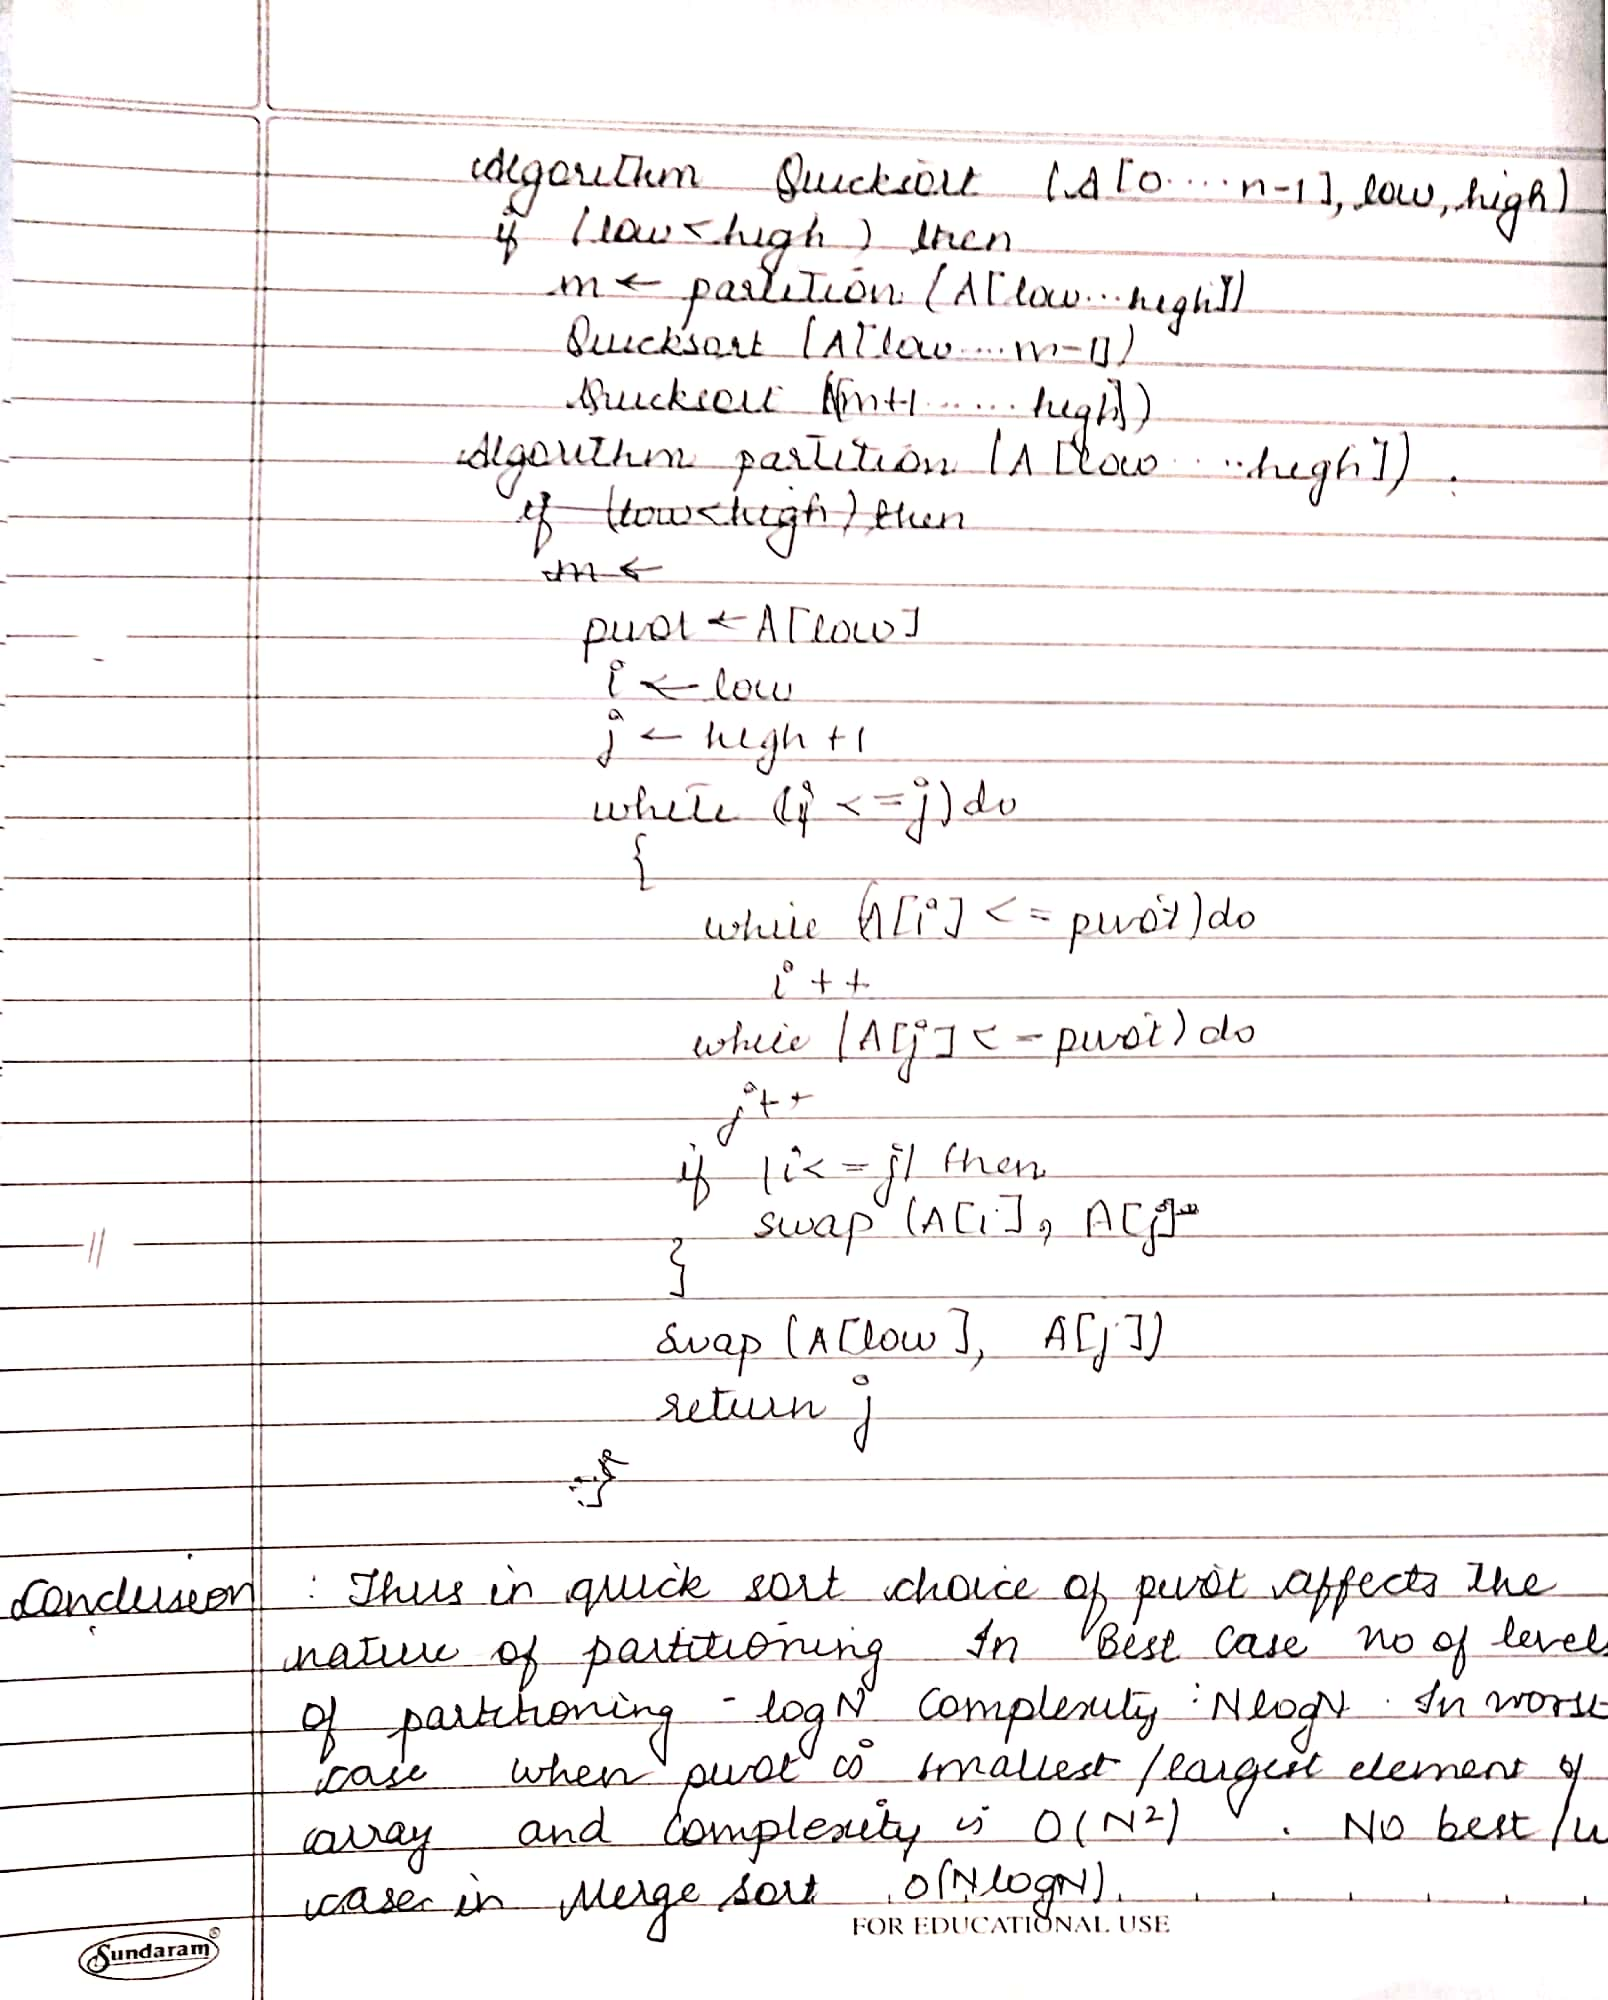 Algorithm Quicksort (A[0.....n-1], low, high)
if (low<high) then
m ← partition (A[low...high])
Quicksort (A[low....m-1])
Quicksort (A[m+1...... high])
Algorithm partition (A[low.....high]).
if (low<high) then
m ←
pivot ← A[low]
i ← low
j ← high +1
while (i <=j) do
{
while (A[i] <= pivot) do
i ++
while (A[j] <= pivot) do
j++
if (i<=j) then
swap (A[i], A[j]
}
swap (A[low], A[j])
return j
Conclusion : Thus in quick sort choice of pivot affects the
nature of partitioning In Best Case no of levels
of partitioning - logN Complexity : NlogN. In worst
case when pivot is smallest /largest element of
array and Complexity is O(N²) . No best /w
case in Merge sort O(NlogN).
FOR EDUCATIONAL USE
Sundaram